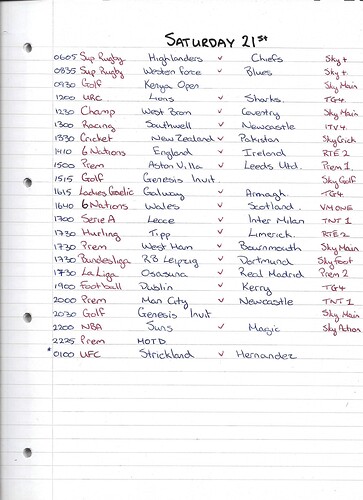 SATURDAY 21ST
0605 Sup Rugby Highlanders v Chiefs Sky+
0835 Sup Rugby Western Force v Blues Sky+
0930 Golf Kenya Open Sky Main
1200 URC Lions v Sharks. TG4
1230 Champ West Brom v Coventry Sky Main
1300 Racing Southwell v Newcastle ITV4.
1330 Cricket New Zealand v Pakistan Sky Crick
1410 6 Nations England v Ireland RTE 2
1500 Prem Aston Villa v Leeds Utd. Prem 1.
1515 Golf Genesis Invit. Sky Golf
1615 Ladies Gaelic Galway v Armagh TG4.
1640 6 Nations Wales v Scotland. VM ONE
1700 Serie A Lecce v Inter Milan TNT 1
1730 Hurling Tipp v Limerick. RTE 2
1730 Prem West Ham v Bournmouth Sky Main
1730 Bundesliga RB Leipzig v Dortmund Sky Foot
1730 La Liga Osasuna v Real Madrid Prem 2
1900 Football Dublin v Kerry TG4
2000 Prem Man City v Newcastle TNT 1
2030 Golf Genesis Invit Sky Main
2200 NBA Suns v Magic Sky Action
2225 Prem MOTD
*0100 UFC Strickland v Hernandez